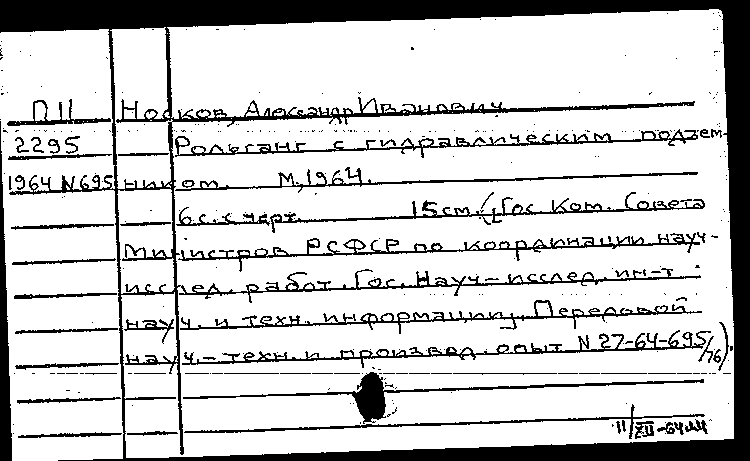 П11 Носков, Александр Иванович
2295 Рольганг с гидравлическим подзем-
1964 N695 ником. М, 1964.
6с. с черт. 15см. (Гос. Ком. Совета
Министров РСФСР по координации науч-
исслед. работ. Гос. Науч-исслед. ин-т
науч. и техн. информации. Передовой
науч.-техн. и произвед. опыт N 27-64-695/76).
11/XII-64